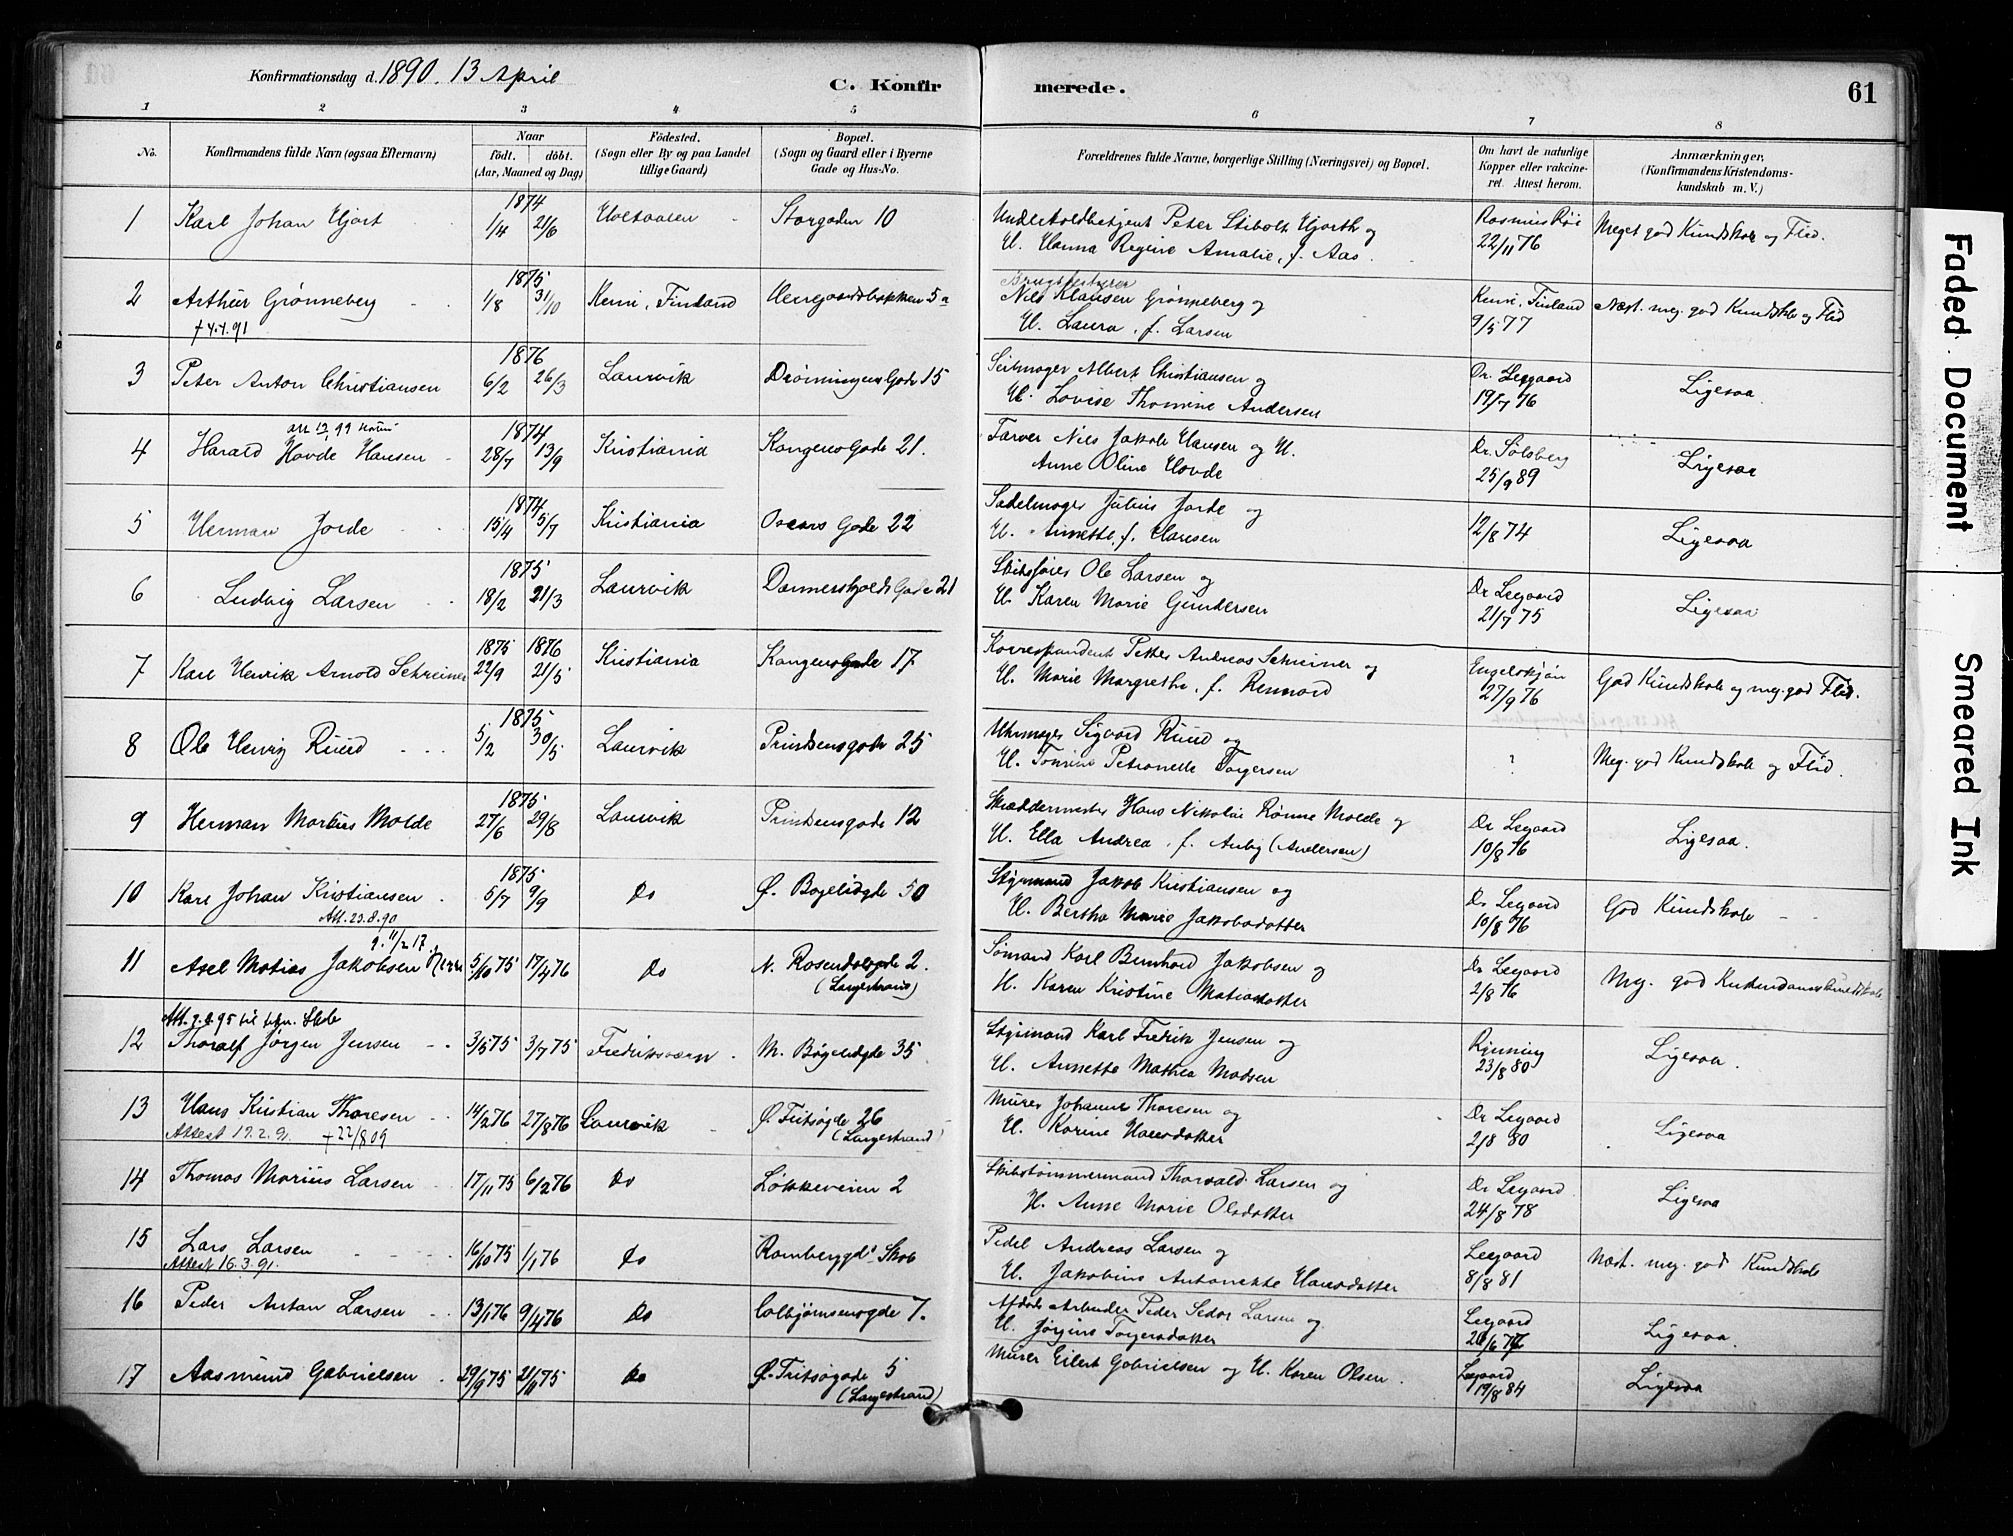 Konfirmationsdag d. 1890. 13 April
C. Konfirmerede.
61
1 2 3 4 5 6 7 8
No.
Konfirmandens fulde Navn (ogsaa Efternavn)
Naar
födt. döbt.
(Aar, Maaned og Dag)
Födested.
(Sogn eller By og paa Landet tillige Gaard)
Bopæl.
(Sogn og Gaard eller i Byerne Gade og Hus-No.
Forældrenes fulde Navne, borgerlige Stilling (Næringsvei) og Bopæl.
Om havt de naturlige Kopper eller vakcineret. Attest herom.
Anmærkninger.
(Konfirmandens Kristendomskundskab m. V.)
1 Karl Johan Hjort 1874 1/4 21/6 Holtaalen Storgaden 10 Underholdbetjent Peter Stibolt Hjorth og Rasmus Röe Meget god Kundskab og Flid.
H. Hanna Regine Amalie, f. Aas. 22/11 76
2 Arthur Grønneberg 1875 1/8 31/10 Kemi, Finland Herregaardsbakken 5a Brugsbestyrer Nils Klausen Grønneberg og Kemi, Finland Næst. meg. god Kundskab og Flid
† 4.4.91 H. Laura, f. Larsen 9/5 77
3 Peter Anton Christiansen 1876 6/2 26/3 Laurvik Dronningens Gade 15 Seilmager Albert Christiansen og Dr. Legaard Ligesaa
H. Lovise Thomine Andersen 19/7 76
4 Harald Hovde Hansen 1874 28/7 13/9 Kristiania Kongens Gade 21. Farver Nils Jakob Hansen og H. Dr. Solsberg Ligesaa
Anne Oline Hovde 25/9 89
5 Herman Jorde 1874 15/4 5/7 Kristiania Oscars Gade 22 Sadelmager Julius Jorde og 12/8 74 Ligesaa
H. Annette, f. Hansen
6 Ludvig Larsen 1875 18/2 21/3 Laurvik Dannerskjolds Gade 21 Skibsfører Ole Larsen og Dr Legaard Ligesaa
H. Karen Marie Gundersen 21/7 75
7 Karl Henrik Arnold Schreiner 1875 22/9 1876 21/5 Kristiania Kongensgade 17 Korrespondent Petter Andreas Schreiner og Engelskjön God Kundskab og meg. god Flid.
H. Marie Margrethe, f. Rennord 27/9 76
8 Ole Henrig Ruud 1875 5/2 30/5 Laurvik Prindsensgade 25 Uhrmager Sigvard Ruud og ? Meg. god Kundskab og Flid.
H. Tomine Petronelle Torgersen
9 Herman Marius Molde 1875 27/6 29/8 Laurvik Prindsensgade 12 Skræddermester Hans Nikolai Rönne Molde og Dr Legaard Ligesaa.
H. Ella Andrea, f. Auby (Andersen) 10/8 76
10 Karl Johan Kristiansen 1875 5/7 9/9 Do Ø. Bøgelidgde 50 Styrmand Jakob Kristiansen og Dr Legaard God Kundskab
Att. 23.8.90 H. Bertha Marie Jakobsdatter 10/8 76
g. 11/2 17
11 Axel Matias Jakobsen 5/10 75 17/4 76 Do N. Rosendalsgde 2. Sömand Karl Bernhard Jakobsen og Dr. Legaard Meg. god Kristendomskundskab
(Langestrand) H. Karen Kristine Matiasdatter 2/8 76
12 Thoralf Jørgen Jensen 3/5 75 3/7 75 Fredriksværn M. Bøgelidgde 35 Styrmand Karl Fredrik Jensen og Rynning Ligesaa.
H. Annette Mathea Madsen 23/8 80
13 Hans Kristian Thoresen 14/2 76 27/8 76 Laurvik Ø. Fritsøgde 26 Murer Johannes Thoresen og Dr Legaard Ligesaa
Attest 17.2.91. † 22/8 09 (Langestrand) H. Karine Hansdatter 2/8 80
14 Thomas Marius Larsen 17/11 75 6/2 76 Do Løkkeveien 2 Skibstømmermand Thorvald Larsen og Dr Legaard Ligesaa
H. Anne Marie Olsdatter 24/8 78
15 Lars Larsen 16/10 75 1/1 76 Do Ramberggds Skole Pedel Andreas Larsen og Legaard Næst. meg. god Kundskab
Attest 16.3.91. H. Jakobine Antonette Hansdatter 8/8 81
16 Peder Anton Larsen 13/1 76 9/4 76 Do Colbjørnsensgde 7. Afdøde Arbeider Peder Sedor Larsen og Legaard Ligesaa
H. Jørgine Torgersdatter
17 Aasmund Gabrielsen 29/9 75 21/11 75 Do Ø. Fritsøgade 5 Murer Eilert Gabrielsen og H. Karen Olsen. Legaard Ligesaa
(Langestrand) 19/8 84
Faded Document
Smeared Ink